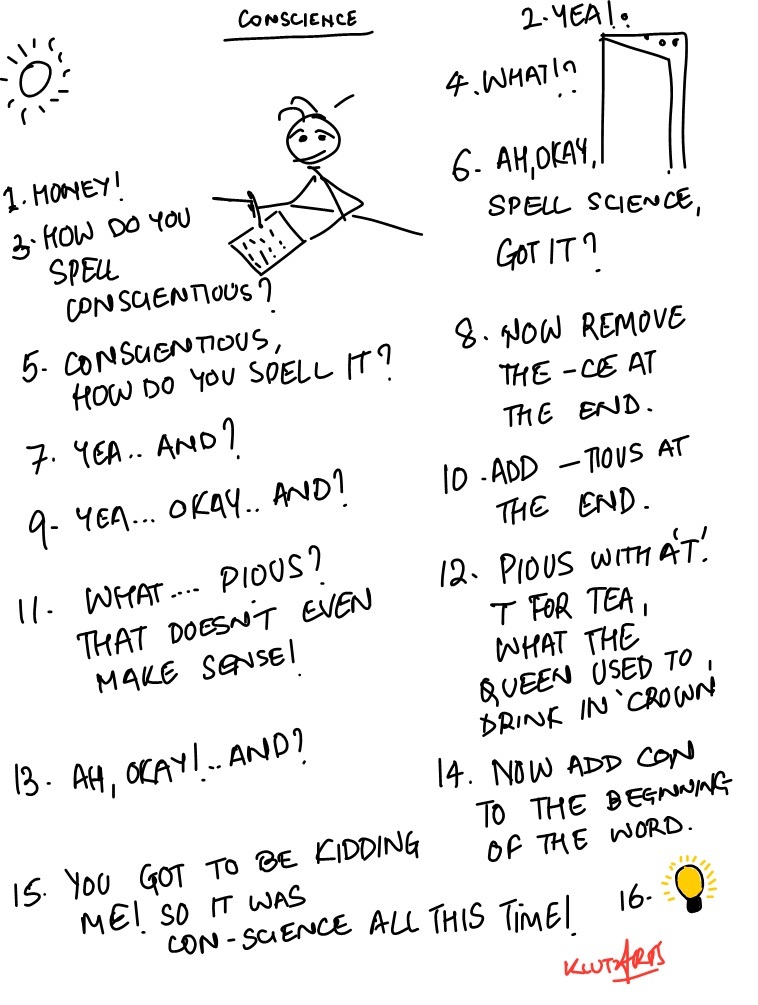 CONSCIENCE
1. HONEY!
2. YEA!
3. HOW DO YOU
SPELL
CONSCIENTIOUS?
4. WHAT!?
5. CONSCIENTIOUS,
HOW DO YOU SPELL IT?
6. AH, OKAY,
SPELL SCIENCE,
GOT IT?
7. YEA.. AND?
8. NOW REMOVE
THE -CE AT
THE END.
9. YEA... OKAY.. AND?
10. ADD -TIOUS AT
THE END.
11. WHAT.... PIOUS?
THAT DOESN'T EVEN
MAKE SENSE!
12. PIOUS WITH A 'T'.
T FOR TEA,
WHAT THE
QUEEN USED TO
DRINK IN 'CROWN'
13. AH, OKAY!.. AND?
14. NOW ADD CON
TO THE BEGINNING
OF THE WORD.
15. YOU GOT TO BE KIDDING
ME! SO IT WAS
CON-SCIENCE ALL THIS TIME!
16.
KLUTZARTS